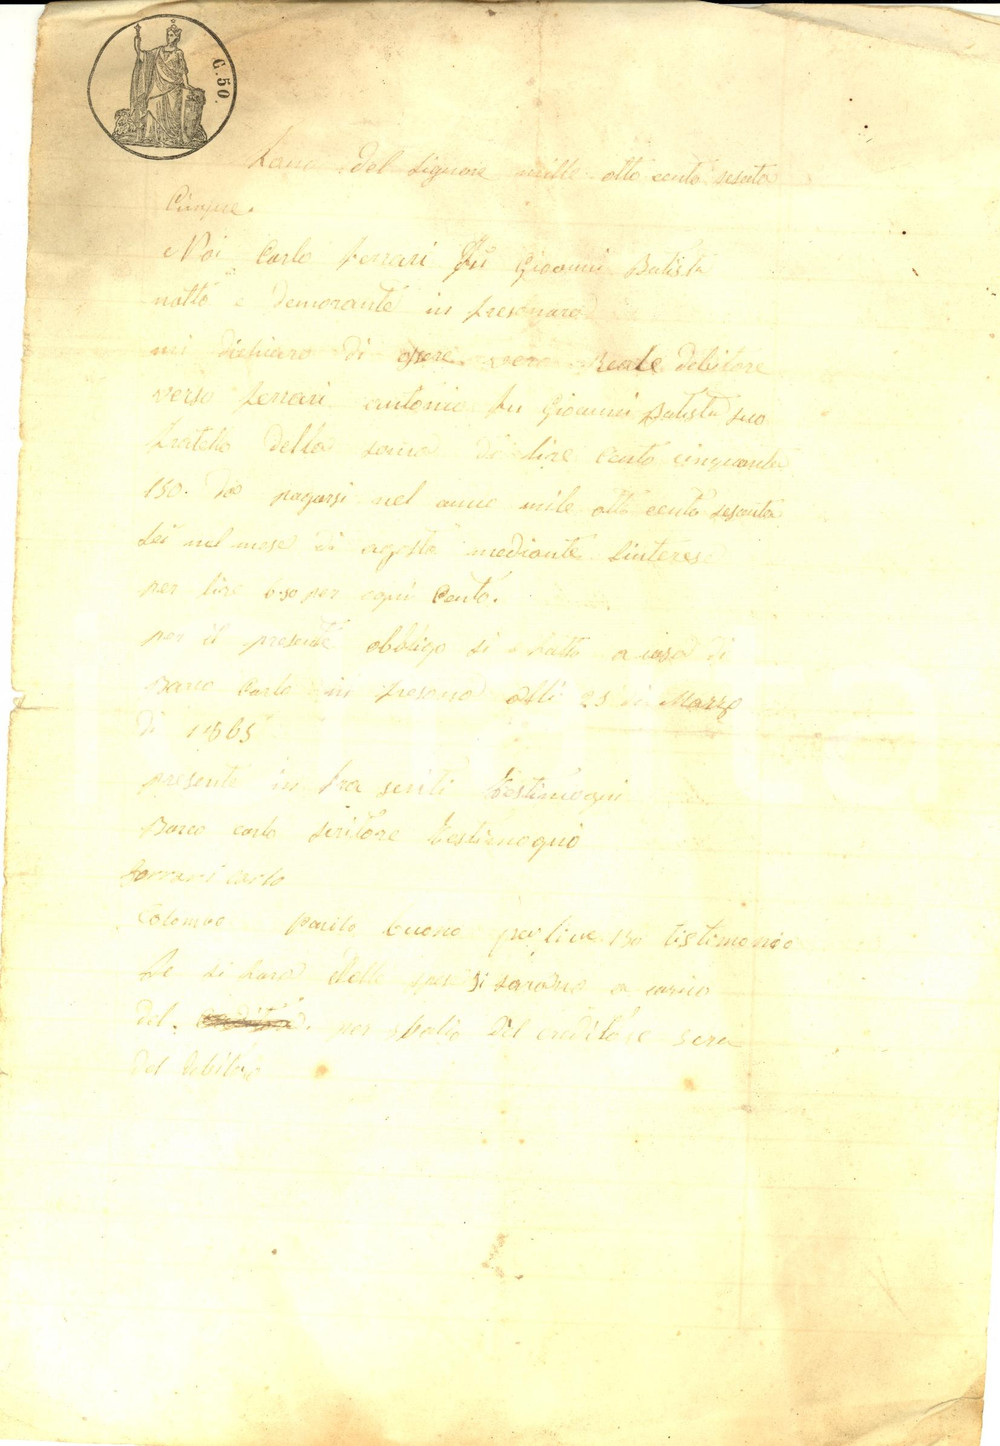 C. 50.
Lano del Signore mille otto cento sesata
Cinque.
Noi Carlo ferrari fu Giovanni Batista
natto e demorante in fresonara
mi dichiaro di esere vero Reale debitore
verso ferrari antonio fu Giovanni Batista suo
fratello della soma di lire cento cinquanta
150. da pagarsi nel anno mile otto cento sesanta
sei nel mese di agosto mediante l'interese
per lire 6.50 per ogni Cento.
per il presente obbligo si è fatto a casa di
Barco Carlo in fresonara alli 25 di Marzo
di 1865
presente in fra scriti testimogni
Barco carlo scritore testimognio
ferrari carlo
Colombo buono per lire 150 testimonio
Se si fara delle spese si sarano a carico
del per sbalio del creditore sera
del debitore